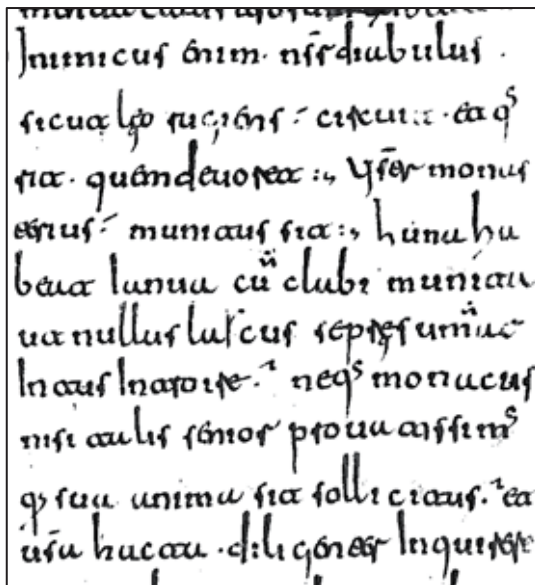 Inimicus enim· nsr̄ diabulus ·
sicut leo rugiens circuit · et qs
rit · quem devoret :, Vester monas
terius munitus sit :, unu ha
beat ianua cū clabe munitam
ut nullus laicus presumat
intus introire neqs monacus
nisi talis senior probatissims
qi sua anima sit sollicitus · et
diligenter inquirere